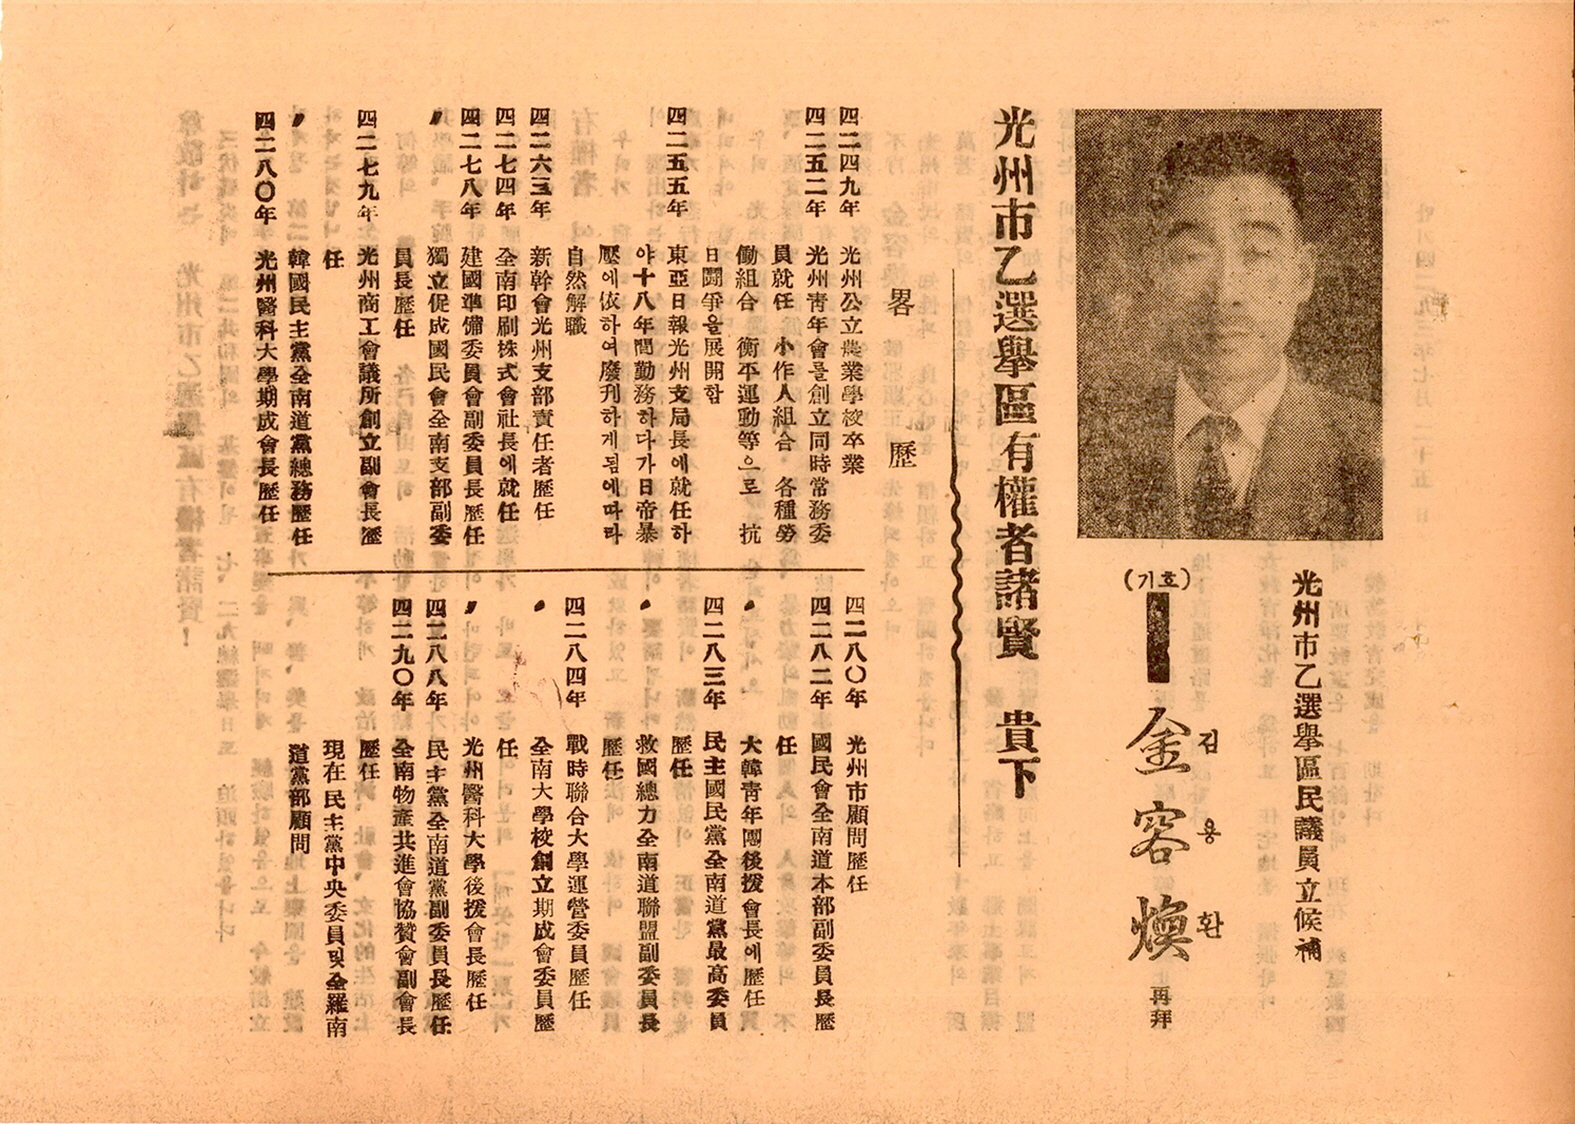 光州市乙選擧區民議員立候補
(기호)
I
金容煥
김용환
再拜
光州市乙選擧區有權者諸賢 貴下
畧歷
四二四九年 光州公立農業學校卒業
四二五二年 光州靑年會를創立同時常務委
員就任 小作人組合 各種勞
働組合 衡平運動等으로 抗
日鬪爭을展開함
四二五五年 東亞日報光州支局長에就任하
야十八年間勤務하다가日帝暴
壓에依하여廢刋하게됨에따라
自然解職
四二六三年 新幹會光州支部責任者歷任
四二七四年 全南印刷株式會社長에就任
四二七八年 建國準備委員會副委員長歷任
〃 獨立促成國民會全南支部副委
員長歷任
四二七九年 光州商工會議所創立副會長歷
任
〃 韓國民主黨全南道黨總務歷任
四二八〇年 光州醫科大學期成會長歷任
四二八〇年 光州市顧問歷任
四二八二年 國民會全南道本部副委員長歷
任
〃 大韓靑年團後援會長에歷任
四二八三年 民主國民黨全南道黨最高委員
歷任
〃 救國總力全南道聯盟副委員長
歷任
四二八四年 戰時聯合大學運營委員歷任
〃 全南大學校創立期成會委員歷
任
〃 光州醫科大學後援會長歷任
四二八八年 民主黨全南道黨副委員長歷任
四二九〇年 全南物產共進會協贊會副會長
歷任
現在民主黨中央委員및全羅南
道黨部顧問